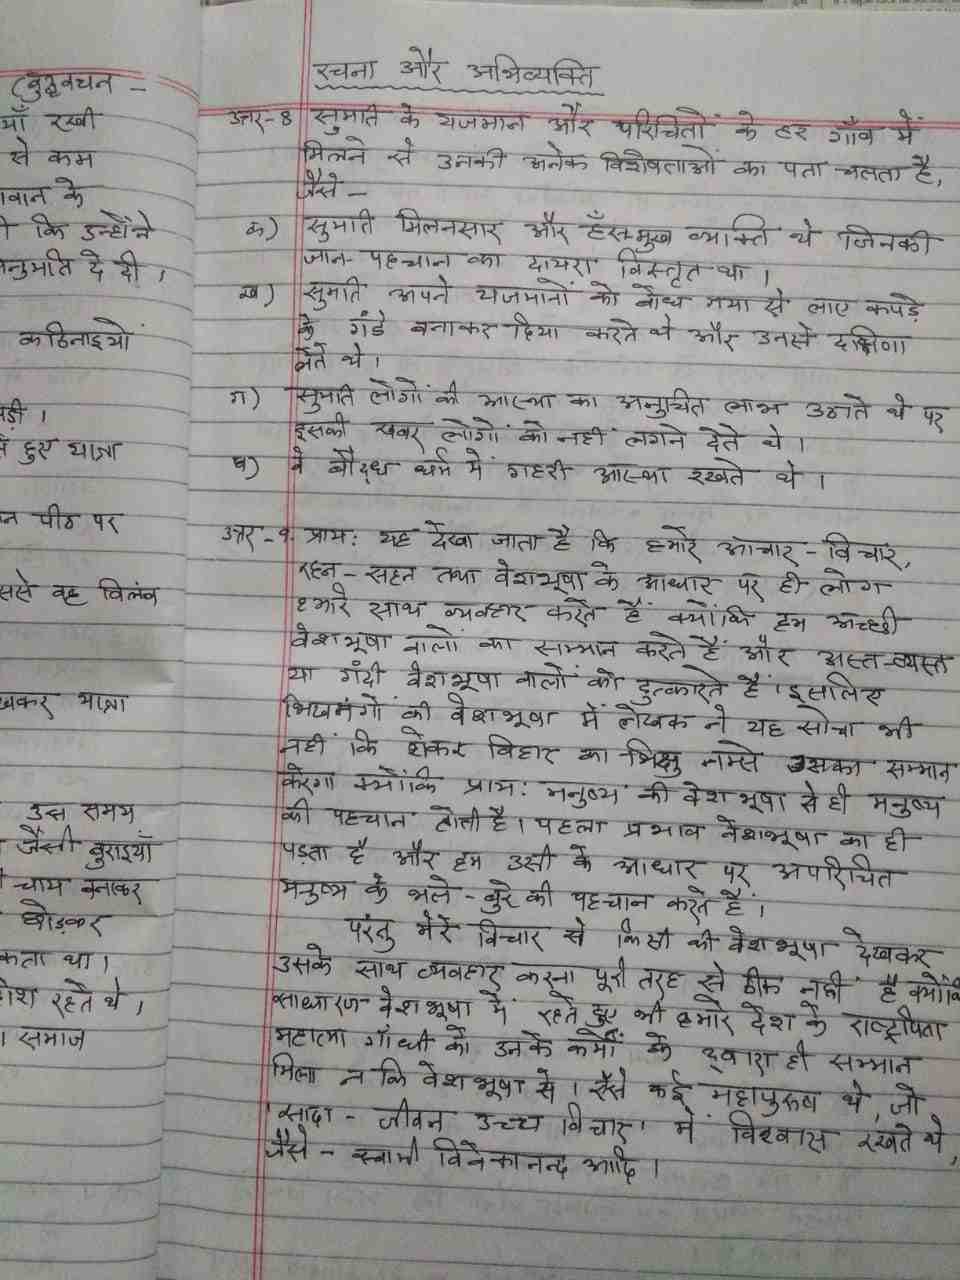 बहुवचन -
माँ रखी
से कम
गवान के
कि उन्होंने
नुमति दे दी ।
कठिनाइयों
पड़ी ।
हुए यात्रा
पीठ पर
ससे वह विलंब
खकर यात्रा
उस समय
जैसी बुराइयाँ
चाय बनाकर
छोड़कर
कता था ।
रहते थे ,
। समाज
रचना और अभिव्यक्ति
उत्तर-8 सुमति के यजमान और परिचितों के हर गाँव में
मिलने से उनकी अनेक विशेषताओं का पता चलता है,
जैसे -
क) सुमति मिलनसार और हँसमुख व्यक्ति थे जिनकी
जान-पहचान का दायरा विस्तृत था ।
ख) सुमति अपने यजमानों को बोध गया से लाए कपड़े
के गंडे बनाकर दिया करते थे और उनसे दक्षिणा
लेते थे ।
ग) सुमति लोगों की आस्था का अनुचित लाभ उठाते थे पर
इसकी खबर लोगों को नहीं लगने देते थे ।
घ) वे बौद्ध धर्म में गहरी आस्था रखते थे ।
उत्तर-9. प्राय: यह देखा जाता है कि हमारे आचार-विचार,
रहन-सहन तथा वेशभूषा के आधार पर ही लोग
हमारे साथ व्यवहार करते हैं क्योंकि हम अच्छी
वेशभूषा वालों का सम्मान करते हैं और अस्त-व्यस्त
या गंदी वेशभूषा वालों को दुत्कारते हैं । इसलिए
भिखमंगों की वेशभूषा में लेखक ने यह सोचा भी
नहीं कि शेकर विहार का भिक्षु नम्से उसका सम्मान
करेगा क्योंकि प्राय: मनुष्य की वेशभूषा से ही मनुष्य
की पहचान होती है । पहला प्रभाव वेशभूषा का ही
पड़ता है और हम उसी के आधार पर अपरिचित
मनुष्य के भले-बुरे की पहचान करते हैं ।
परंतु मेरे विचार से किसी की वेशभूषा देखकर
उसके साथ व्यवहार करना पूरी तरह से ठीक नहीं है क्योंकि
साधारण वेशभूषा में रहते हुए भी हमारे देश के राष्ट्रपिता
महात्मा गाँधी को उनके कर्मों के द्वारा ही सम्मान
मिला न कि वेशभूषा से । ऐसे कई महापुरुष थे, जो
'सादा-जीवन उच्च विचार' में विश्वास रखते थे,
जैसे - स्वामी विवेकानन्द आदि ।